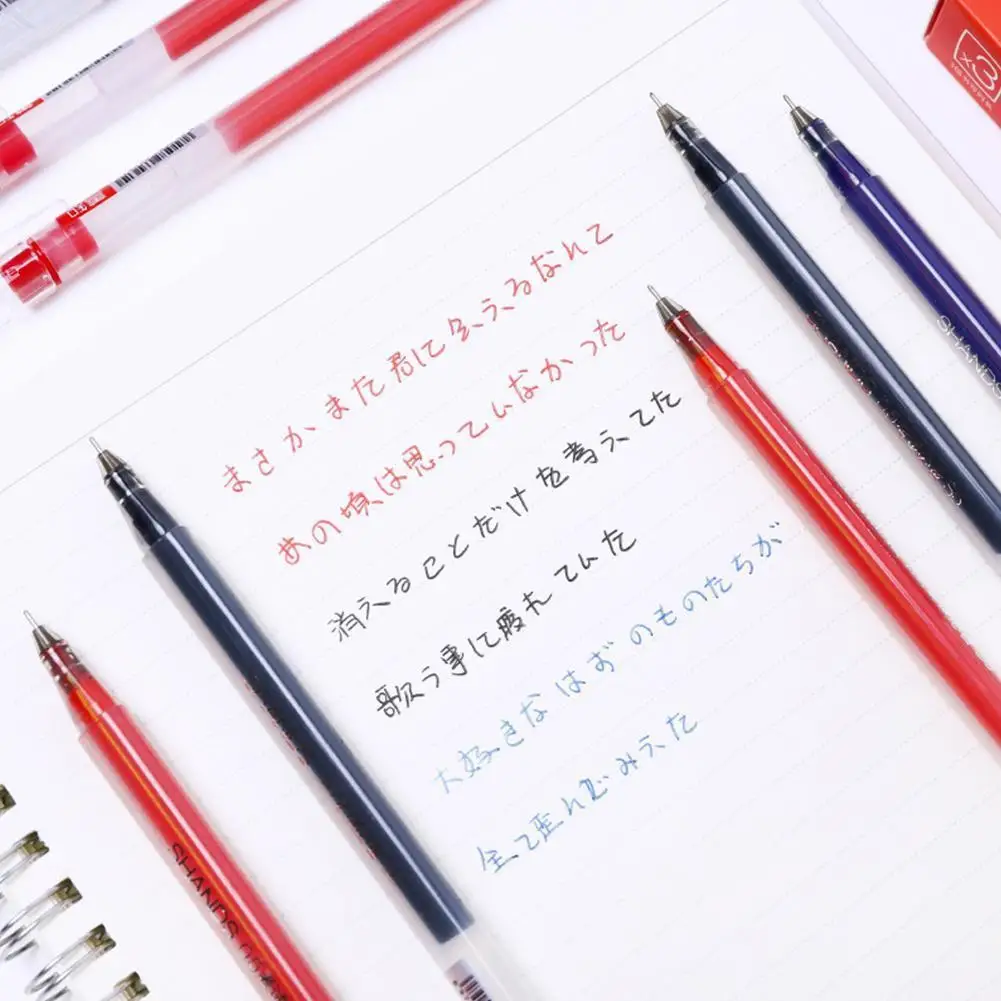 まさか また 君に会えるなんて
あの頃は思っていなかった
消えることだけを考えてた
歌う事に疲れていた
大好きな はずのものたちが
全て歪んでみえた
SHANDS
SHANDS
x3